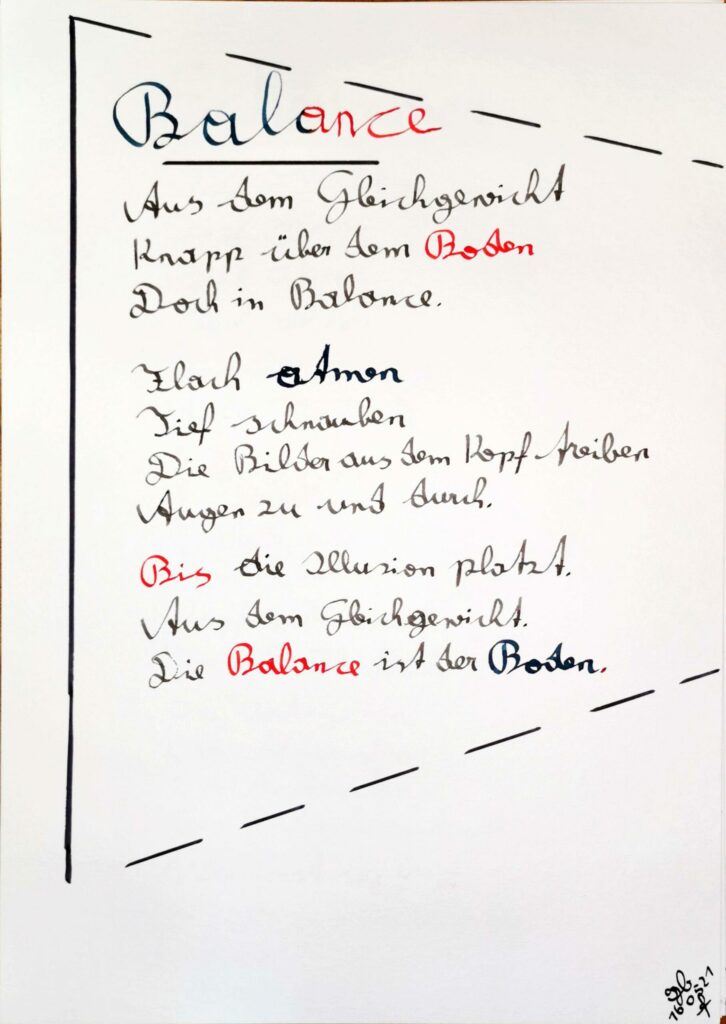 Balance
Aus dem Gleichgewicht
Knapp über dem Boden
Doch in Balance.
Flach atmen
Tief schnauben
Die Bilder aus dem Kopf treiben
Augen zu und durch.
Bis die Illusion platzt.
Aus dem Gleichgewicht.
Die Balance ist der Boden.